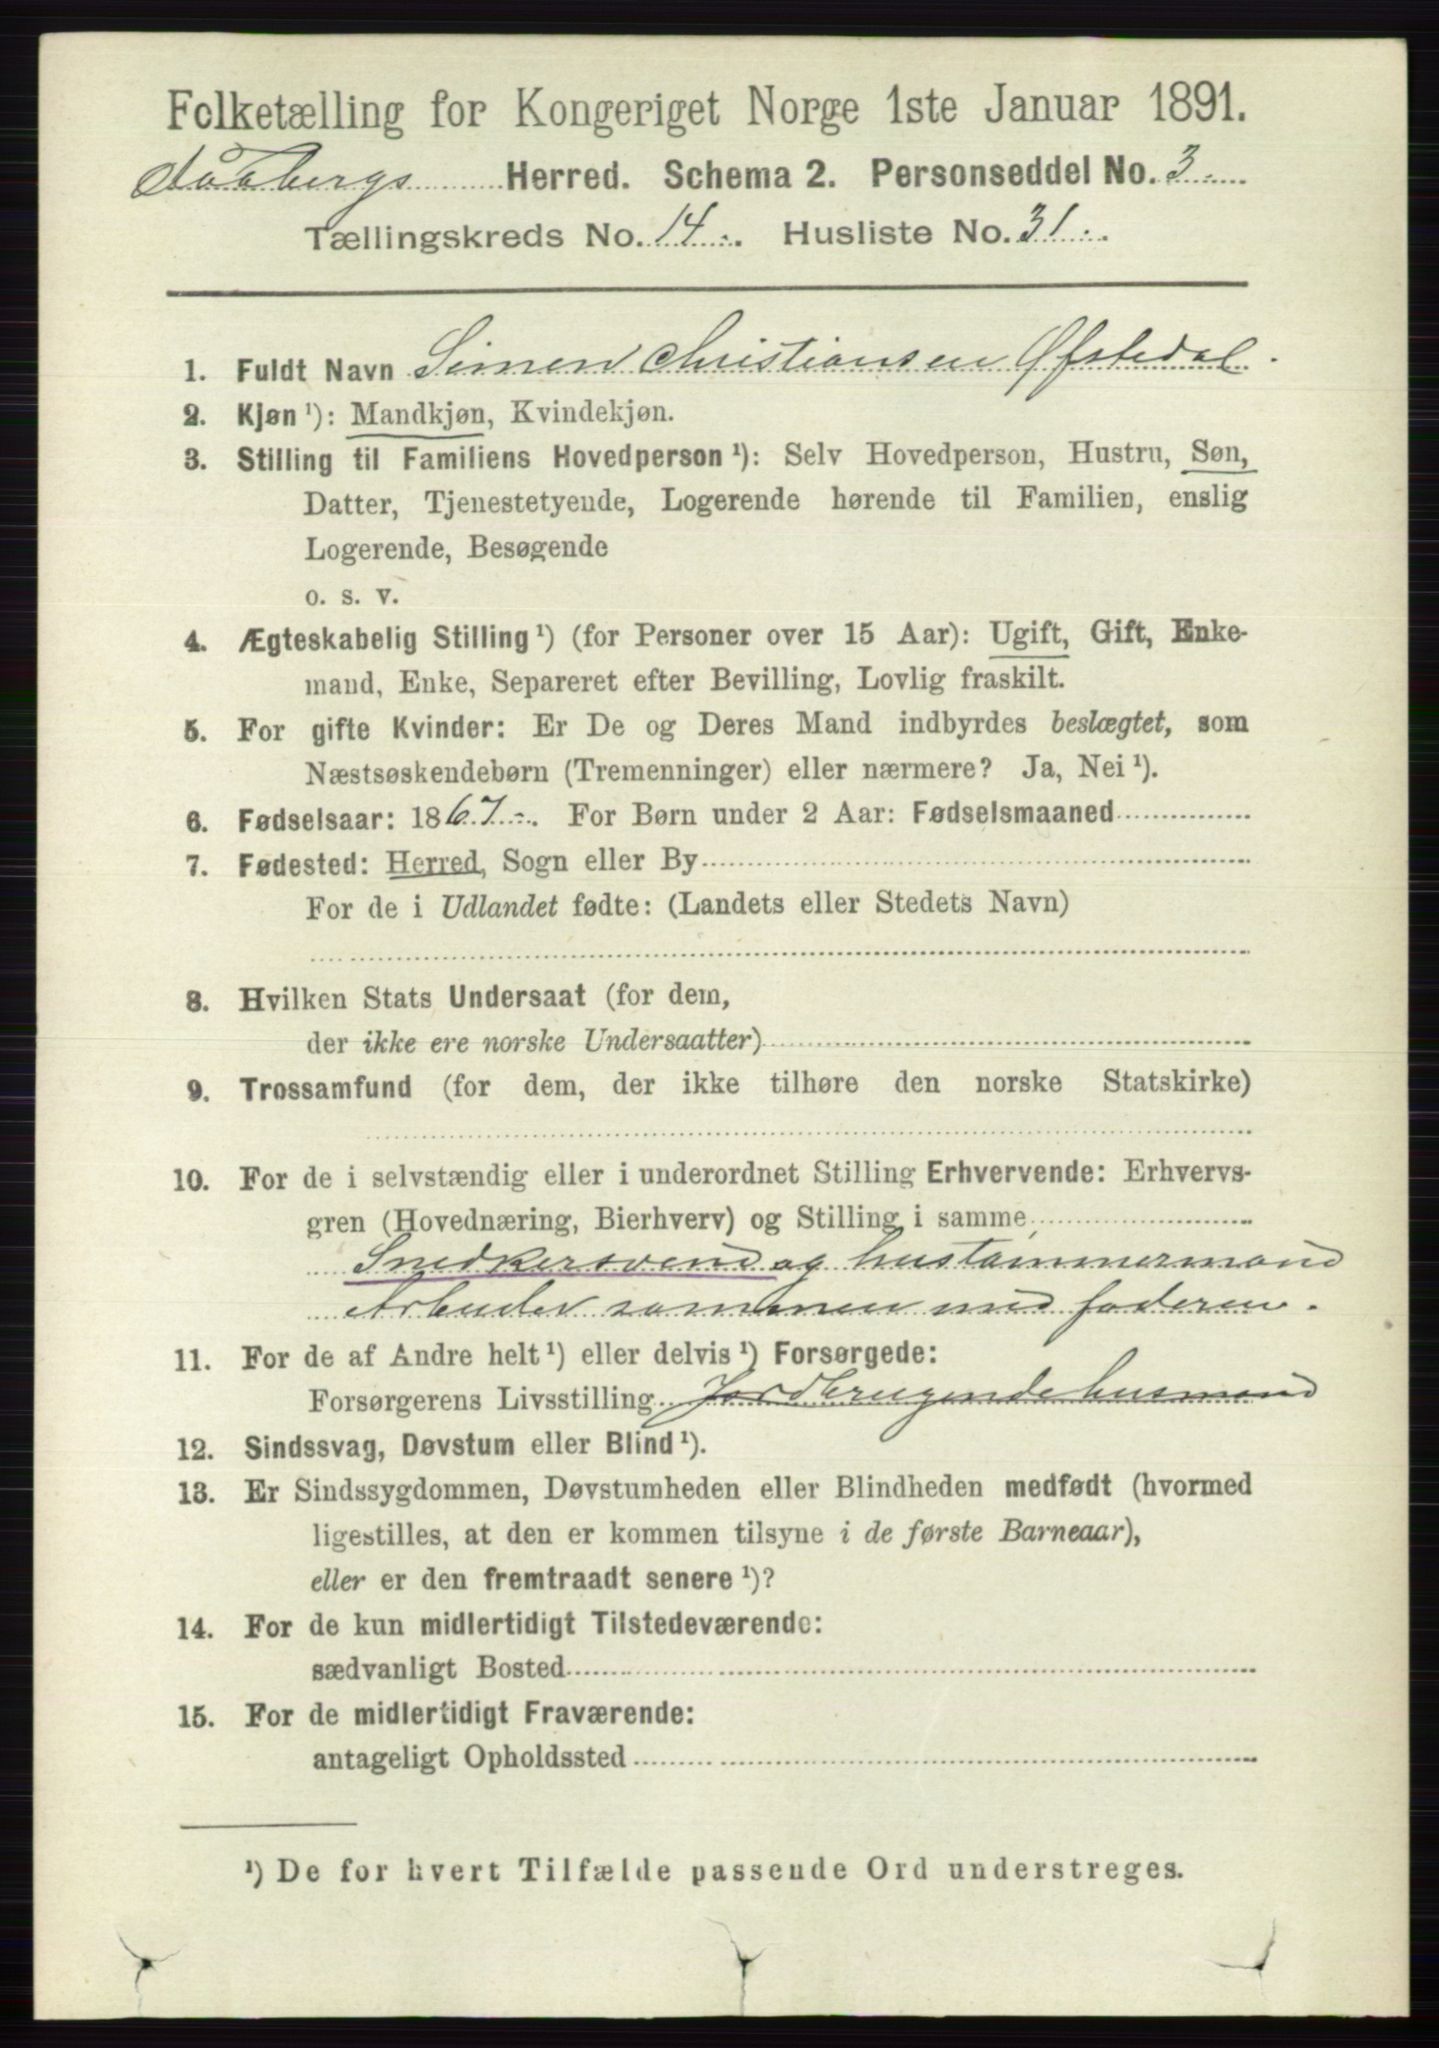 Folketælling for Kongeriget Norge 1ste Januar 1891.
Faabergs Herred. Schema 2. Personseddel No. 3.
Tællingskreds No. 14. Husliste No. 31.
1. Fuldt Navn Simen Christiansen Øfstedal.
2. Kjøn ¹): Mandkjøn, Kvindekjøn.
3. Stilling til Familiens Hovedperson ¹): Selv Hovedperson, Hustru, Søn,
Datter, Tjenestetyende, Logerende hørende til Familien, enslig
Logerende, Besøgende
o. s. v.
4. Ægteskabelig Stilling ¹) (for Personer over 15 Aar): Ugift, Gift, Enke-
mand, Enke, Separeret efter Bevilling, Lovlig fraskilt.
5. For gifte Kvinder: Er De og Deres Mand indbyrdes beslægtet, som
Næstsøskendebørn (Tremenninger) eller nærmere? Ja, Nei ¹).
6. Fødselsaar: 1867. For Børn under 2 Aar: Fødselsmaaned
7. Fødested: Herred, Sogn eller By
For de i Udlandet fødte: (Landets eller Stedets Navn)
8. Hvilken Stats Undersaat (for dem,
der ikke ere norske Undersaatter)
9. Trossamfund (for dem, der ikke tilhøre den norske Statskirke)
10. For de i selvstændig eller i underordnet Stilling Erhvervende: Erhvervs-
gren (Hovednæring, Bierhverv) og Stilling i samme
Snedkersvend og hustømmermand
Arbeider sammen med faderen.
11. For de af Andre helt ¹) eller delvis ¹) Forsørgede:
Forsørgerens Livsstilling Jordbrugende husmand
12. Sindssvag, Døvstum eller Blind ¹).
13. Er Sindssygdommen, Døvstumheden eller Blindheden medfødt (hvormed
ligestilles, at den er kommen tilsyne i de første Barneaar),
eller er den fremtraadt senere ¹)?
14. For de kun midlertidigt Tilstedeværende:
sædvanligt Bosted
15. For de midlertidigt Fraværende:
antageligt Opholdssted
¹) De for hvert Tilfælde passende Ord understreges.